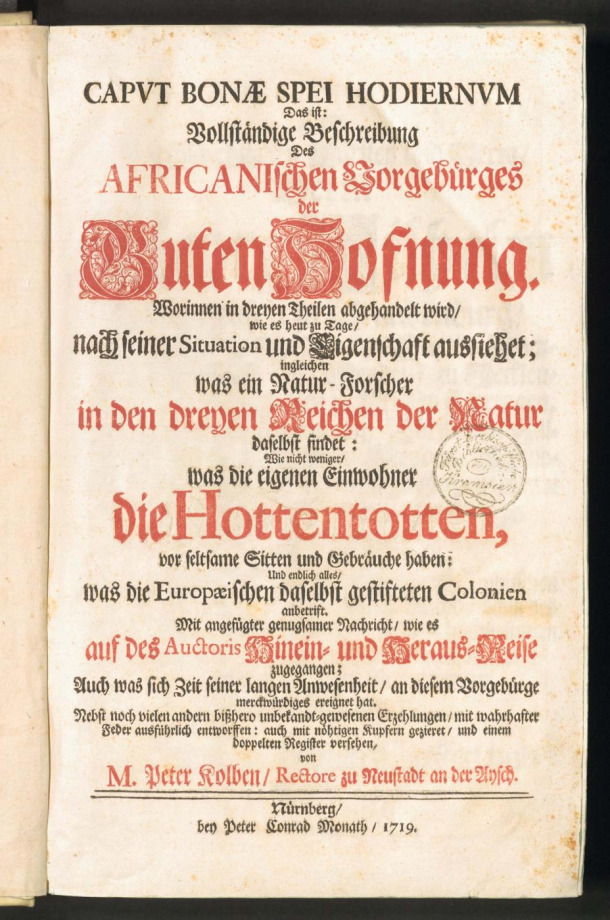 CAPVT BONÆ SPEI HODIERNVM
Das ist:
Vollständige Beschreibung
Des
AFRICANIschen Vorgebürges
der
Guten Hofnung.
Worinnen in dreyen Theilen abgehandelt wird/
wie es heut zu Tage/
nach seiner Situation und Eigenschaft aussiehet;
ingleichen
was ein Natur-Forscher
in den dreyen Reichen der Natur
daselbst findet:
Wie nicht weniger/
was die eigenen Einwohner
die Hottentotten,
vor seltsame Sitten und Gebräuche haben:
Und endlich alles/
was die Europæischen daselbst gestifteten Colonien
anbetrift.
Mit angefügter genugsamer Nachricht/ wie es
auf des Auctoris Hinein- und Heraus-Reise
zugegangen;
Auch was sich Zeit seiner langen Anwesenheit/ an diesem Vorgebürge
merckwürdiges ereignet hat.
Nebst noch vielen andern bißhero unbekandt-gewesenen Erzehlungen/ mit wahrhafter
Feder ausführlich entworffen: auch mit nöhtigen Kupfern gezieret/ und einem
doppelten Register versehen,
von
M. Peter Kolben/ Rectore zu Neustadt an der Aysch.
Nürnberg/
bey Peter Conrad Monath/ 1719.